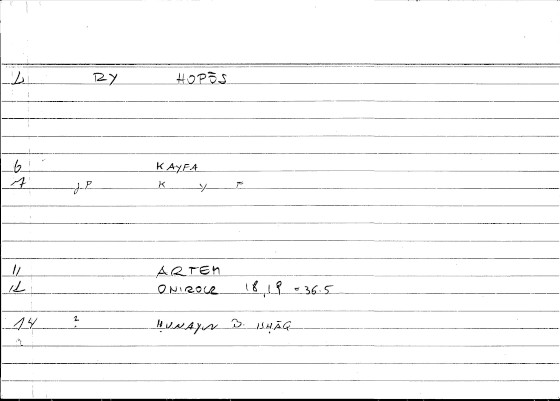 1 RY HOPŌS
6 KAYFA
7 J.P K Y F
11 ARTEM
12 ONIROCR 18,19 = 36.5
14 ? ḤUNAYN B. ISḤĀQ